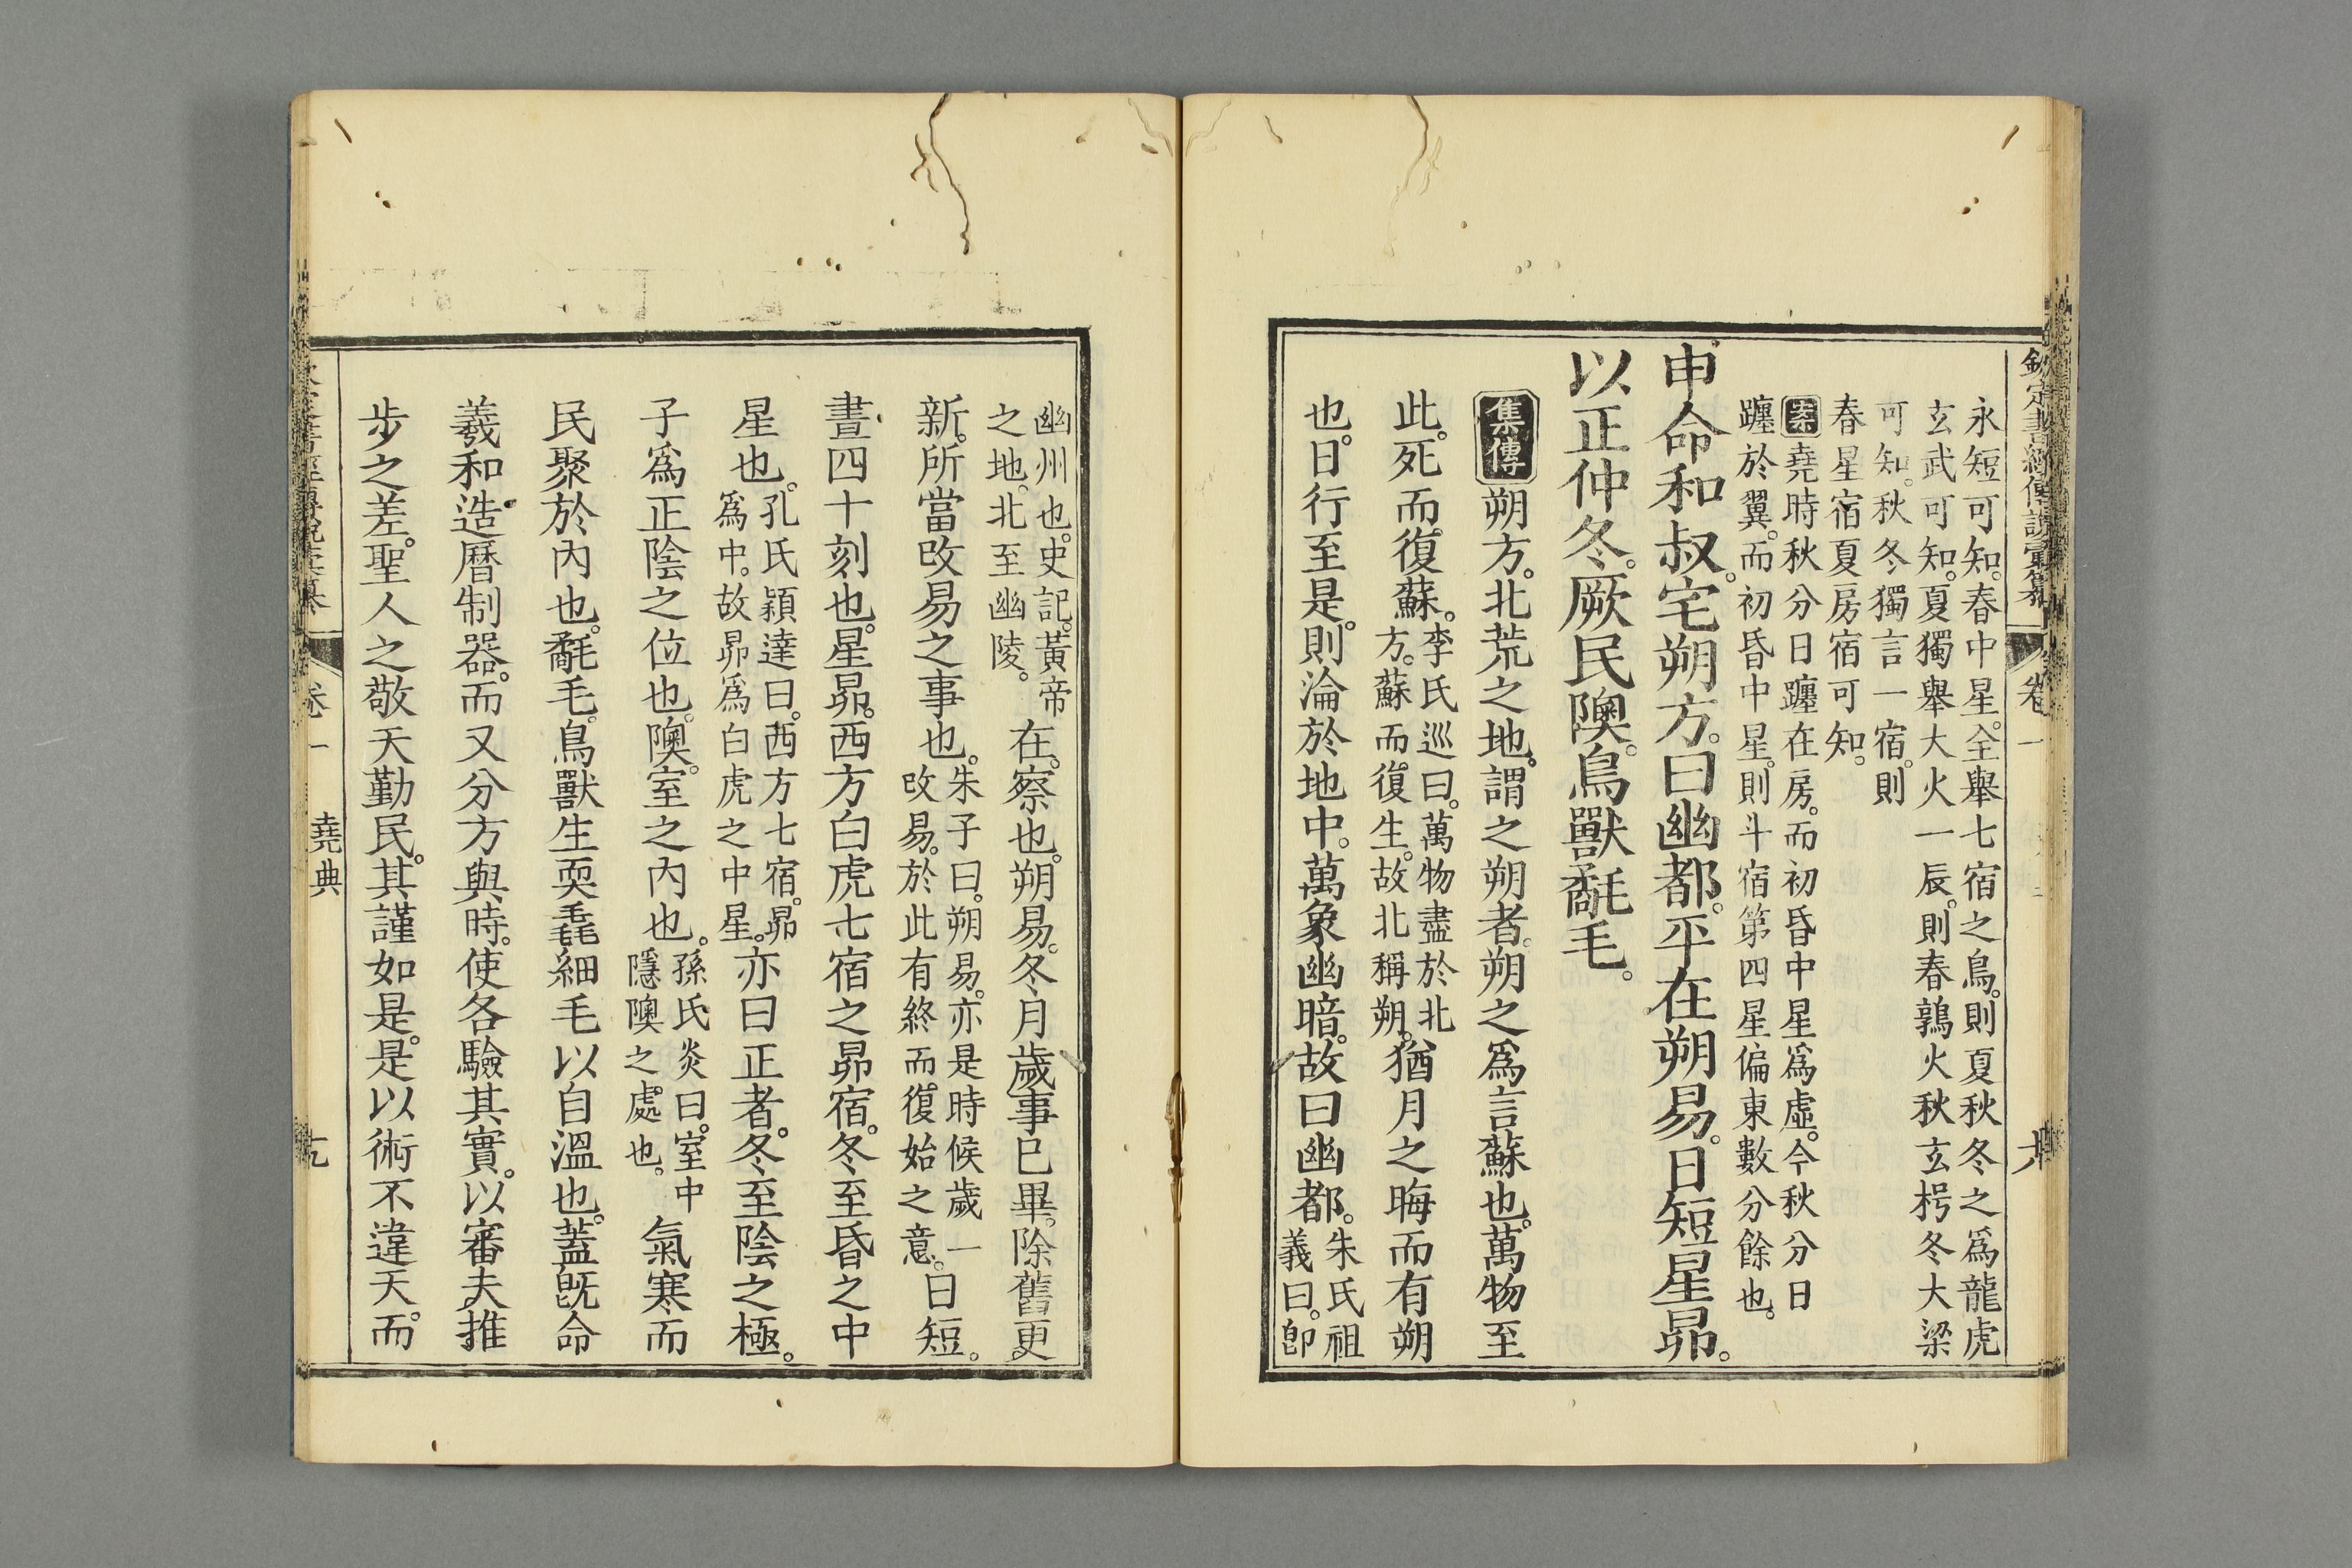 欽定書經傳說彙纂
卷一
永短可知。春中星。全舉七宿之鳥。則夏秋冬之爲龍虎
玄武可知。夏獨舉大火一辰。則春鶉火秋玄枵冬大梁
可知。秋冬獨言一宿。則
春星宿夏房宿可知。
案堯時秋分日躔在房。而初昏中星爲虛。今秋分日
躔於翼。而初昏中星。則斗宿第四星偏東數分餘也。
申命和叔。宅朔方。曰幽都。平在朔易。日短星昴。
以正仲冬。厥民隩。鳥獸氄毛。
集傳朔方。北荒之地。謂之朔者。朔之爲言蘇也。萬物至
此。死而復蘇。
李氏巡曰。萬物盡於北
方。蘇而復生。故北稱朔。
猶月之晦而有朔
也。日行至是。則淪於地中。萬象幽暗。故曰幽都。
朱氏祖
義曰。卽
幽州也。史記。黃帝
之地。北至幽陵。
在。察也。朔易。冬月歲事已畢。除舊更
新。所當改易之事也。
朱子曰。朔易。亦是時候歲一
改易。於此有終而復始之意。
日短。
晝四十刻也。星昴。西方白虎七宿之昴宿。冬至昏之中
星也。
孔氏穎達曰。西方七宿。昴
爲中。故昴爲白虎之中星。
亦曰正者。冬至陰之極。
子爲正陰之位也。隩。室之內也。
孫氏炎曰。室中
隱隩之處也。
氣寒而
民聚於內也。氄毛。鳥獸生耎毳細毛以自溫也。蓋旣命
羲和造曆制器。而又分方與時。使各驗其實。以審夫推
步之差。聖人之敬天勤民。其謹如是。是以術不違天。而
卷一
堯典